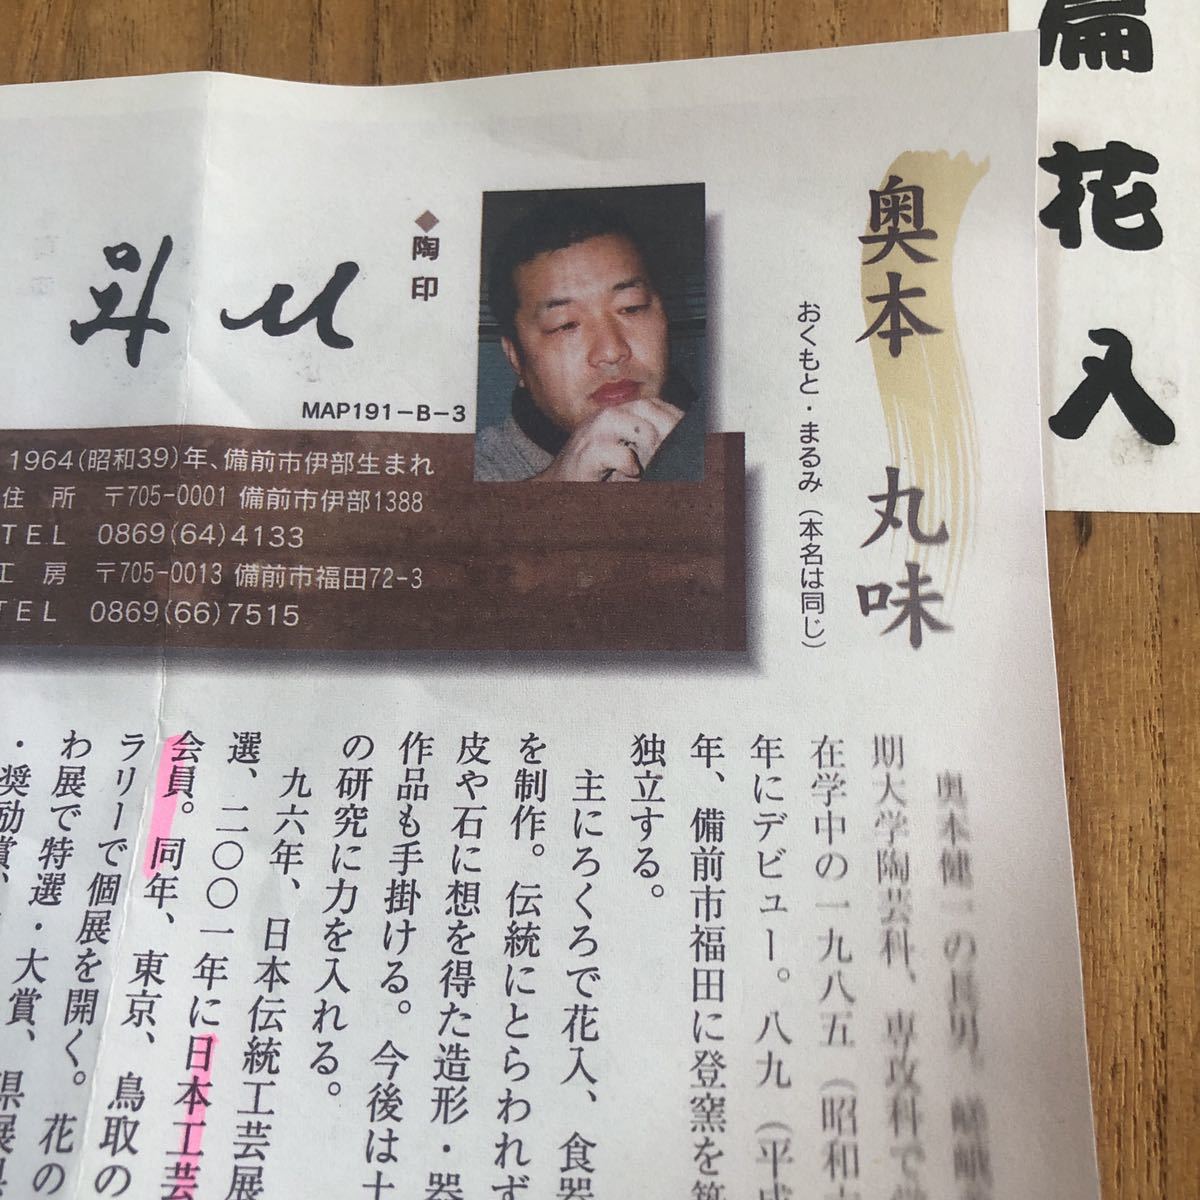 扁花入
奥本 丸味
おくもと・まるみ(本名は同じ)
◆陶印
MAP191-B-3
1964(昭和39)年、備前市伊部生まれ
住 所 〒705-0001 備前市伊部1388
TEL 0869(64)4133
工 房 〒705-0013 備前市福田72-3
TEL 0869(66)7515
奥本健一の長男。嵯峨
期大学陶芸科、専攻科で
在学中の一九八五(昭和
年にデビュー。八九(平成
年、備前市福田に登窯を築
独立する。
主にろくろで花入、食器
を制作。伝統にとらわれず
皮や石に想を得た造形・器
作品も手掛ける。今後は土
の研究に力を入れる。
九六年、日本伝統工芸展
選、二〇〇一年に日本工芸
会員。同年、東京、鳥取の
ラリーで個展を開く。花の
わ展で特選・大賞、県展
・奨励賞、